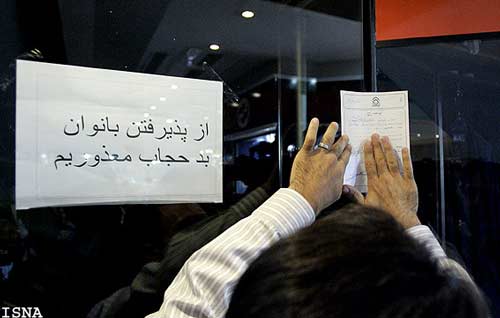 از پذیرفتن بانوان
بد حجاب معذوریم
ISNA